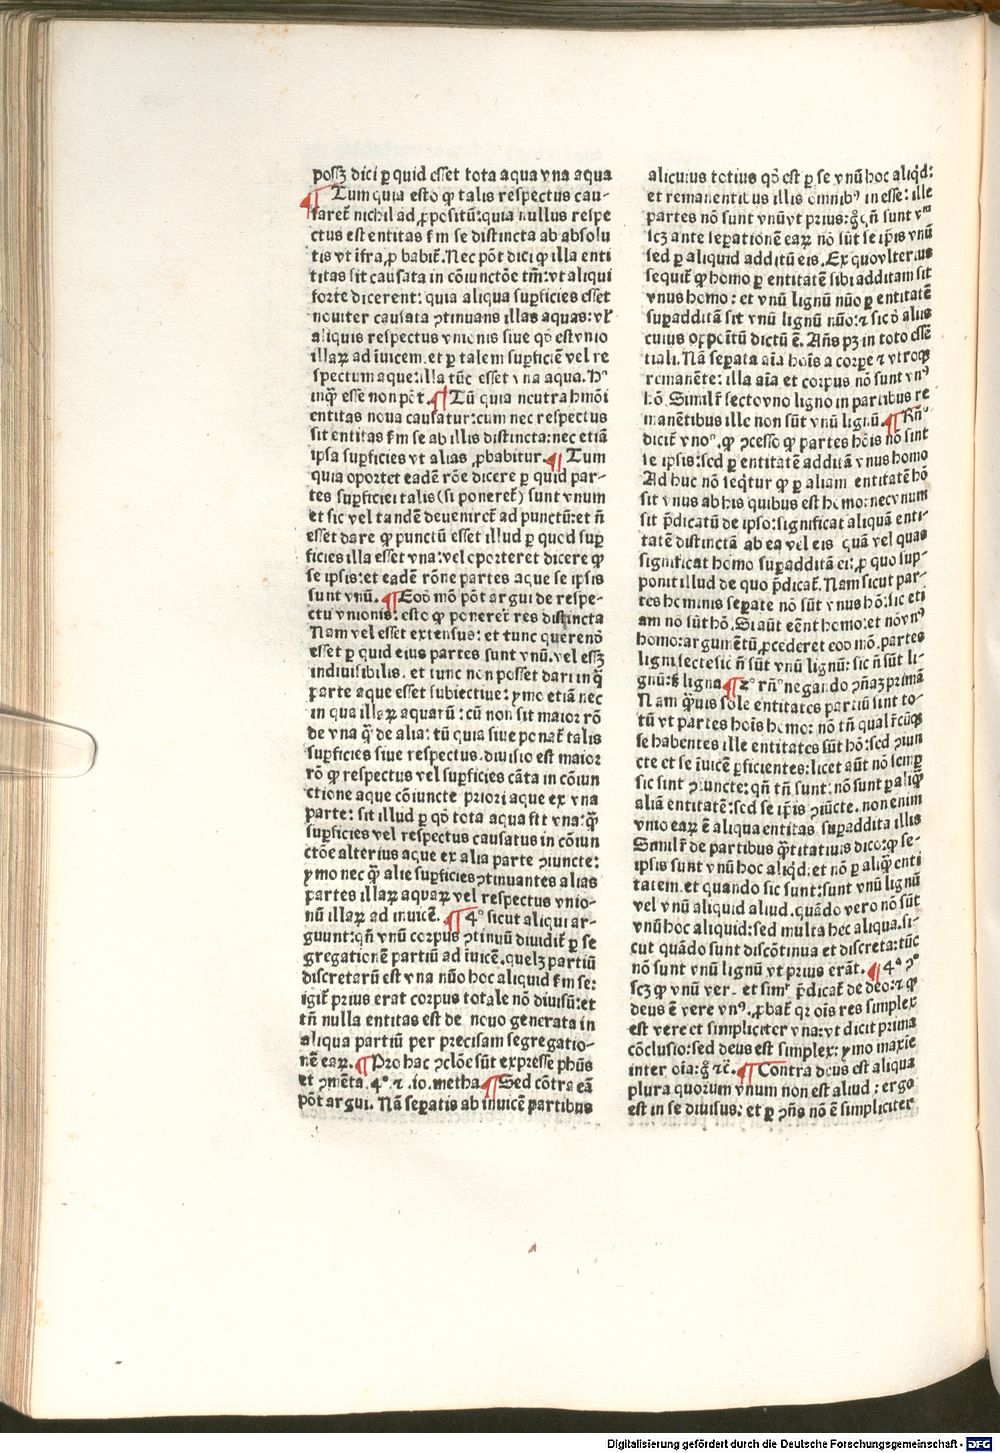 possꝫ dici ꝑ quid esset tota aqua vna aqua
¶ Tum quia esto ꝙ talis respectus cau-
saret᷑ nichil ad ꝓpositū: quia nullus respe
ctus est entitas ẜm se distincta ab absolu
tis vt ifra ꝓbabit᷑. Nec pōt dici ꝙ illa enti
titas sit causata in cōiunctōe tm̄: vt aliqui
forte dicerent: quia aliqua suꝑficies esset
nouiter causata ꝯtinuans illas aquas: vl᷑
aliquis respectus vnionis siue qd̄ est vnio
illaꝝ ad īuicem. et ꝑ talem suꝑficiē vel re
spectum aque illa tūc esset vna aqua. Hº
inqͣ esse non pōt. ¶ Tū quia neutra hmōi
entitas noua causatur: cum nec respectus
sit entitas ẜm se ab illis distincta: nec etiā
ipsa suꝑficies vt alias ꝓbabitur. ¶ Tum
quia oportet eadē rōe dicere ꝑ quid par-
tes suꝑficiei talis (si poneret᷑) sunt vnum
et sic vel tandē deueniret᷑ ad punctū: et n̄
esset dare ꝙ punctū esset illud ꝑ quod suꝑ
ficies illa esset vna: vel oporteret dicere ꝙ
se ipsis: et eadē rōne partes aque se ipsis
sunt vnū. ¶ Eodē mō pōt argui de respe-
ctu vnionis: esto ꝙ poneret᷑ res distincta
Nam vel esset extensus: et tunc querendū
esset ꝑ quid eius partes sunt vnū. vel essꝫ
indiuisibilis. et tunc non posset dari in qͣ
parte aque esset subiectiue: ymo etiā nec
in qua illaꝝ aquarū: cū non sit maior rō
de vna qͣꝫ de alia: tū quia siue ponat᷑ talis
suꝑficies siue respectus. diuisio est maior
rō ꝙ respectus vel suꝑficies cāta in cōiun
ctione aque cōiuncte priori aque ex vna
parte: sit illud ꝑ qd̄ tota aqua fit vna: qͣꝫ
suꝑficies vel respectus causatus in cōiun
ctōe alterius aque ex alia parte ꝯiuncte:
ymo nec qͣꝫ alie suꝑficies ꝯtinuantes alias
partes illaꝝ aquaꝝ vel respectus vnio-
nū illaꝝ ad inuicē. ¶ 4º sicut aliqui ar-
guunt: qn̄ vnū corpus ꝯtinuū diuidit᷑ ꝑ se
gregationē partiū ad īuicē. quelꝫ partiū
discretarū est vna nūo hoc aliquid ẜm se:
igit᷑ prius erat corpus totale nō diuisū: et
tn̄ nulla entitas est de nouo generata in
aliqua partiū per precisam segregatio-
nē eaꝝ. ¶ Pro hac ꝯclōe sūt expresse phūs
et ꝯmēta. 4º ⁊ .10. metha. ¶ Sed cōtra eā
pōt argui. Nā seꝑatis ab inuicē partibus
alicuius totius qd̄ est ꝑ se vnū hoc aliqd:
et remanentibus illis omnibꝰ in esse: ille
partes nō sunt vnū vt prius: gͦ n̄ sunt vnū
scꝫ ante seꝑationē eaꝝ nō sūt se ip̄is vnū
sed ꝑ aliquid additū eis. Ex quo vlterius
sequit᷑ ꝙ homo ꝑ entitatē sibi additam sit
vnus homo: et vnū lignū nūo ꝑ entitatē
suꝑadditā sit vnū lignū nūo: ⁊ sic d̄ aliis
cuius oppōitū dictū ē. Añs pꝫ in toto essē
tiali. Nā seꝑata aīa hoīs a corpe ⁊ vtroqꝫ
remanēte: illa aīa et corpus nō sunt vnꝰ
hō. Similr᷑ secto vno ligno in partibus re
manētibus ille non sūt vnū lignū. ¶ Rn̄
dicit᷑ vnoº. ꝙ ꝯcesso ꝙ partes hoīs nō sint
se ipsis: sed ꝑ entitatē additā vnus homo
Adhuc nō seqt̄ur ꝙ ꝑ aliam entitatē hō
sit vnus ab his quibus est homo: nec vnum
sit p̄dicatū de ipso: significat aliquā enti-
tatē distinctā ab ea vel eis quā vel quas
significat homo suꝑadditā ei: ꝑ quo sup-
ponit illud de quo p̄dicat᷑. Nam sicut par-
tes hominis seꝑate nō sūt vnus hō: sic eti
am nō sūt hō. Si aūt eēnt homo: et nō vnꝰ
homo: argumētū ꝓcederet eod̄ mō. partes
ligni secte sic n̄ sūt vnū lignū: sic n̄ sūt li-
gnū: ⁊ ligna ¶ 2º rn̄º negando ꝯn̄aꝫ primā
Nam qͣuis sole entitates partiū sint to-
tū vt partes hoīs homo: nō tn̄ qualr᷑cūqꝫ
se habentes ille entitates sūt hō: sed ꝯiun
cte et se īuicē ꝑficientes: licet aūt nō semꝑ
sic sint ꝯiuncte: qn̄ tn̄ sunt: nō sunt ꝑ aliqͣ
aliā entitatē: sed se ip̄is ꝯiūcte. non enim
vnio eaꝝ ē aliqua entitas suꝑaddita illis
Similr᷑ de partibus qͣtitatiuis dico: ꝙ se-
ipsis sunt vnū hoc aliqd: et nō ꝑ aliqͣ enti
tatem. et quando sic sunt: sunt vnū lignū
vel vnū aliquid aliud. quādo vero nō sūt
vnū hoc aliquid: sed multa hec aliqua. si-
cut quādo sunt discōtinua et discreta: tūc
nō sunt vnū lignū vt prius erāt. ¶ 4ª ꝯº
scꝫ ꝙ vnū ver. et simr᷑ p̄dicat᷑ de deo: ⁊ ꝙ
deus ē vere vnꝰ. ꝓbat᷑ qꝛ oīs res simplex
est vere et simpliciter vna: vt dicit prima
cōclusio: sed deus est simplex: ymo maxie
inter oīa: gͦ ⁊c̄. ¶ Contra deus est aliqua
plura quorum vnum non est aliud: ergo
est in se diuisus: et ꝑ ꝯn̄s nō ē simpliciter
Digitalisierung gefördert durch die Deutsche Forschungsgemeinschaft - DFG